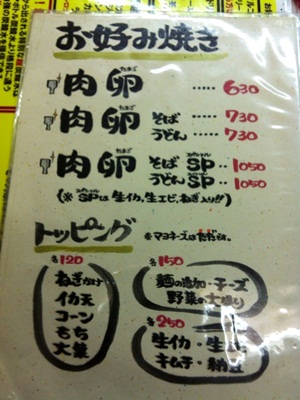 お好み焼き
肉 卵 たまご ····· 630
肉 卵 たまご そば ····· 730
うどん ····· 730
肉 卵 たまご そば SP スペシャル ·· 1050
うどん SP ·· 1050
(※ SP スペシャル は 生イカ、生エビ、ねぎ入り!!)
トッピング ※ マヨネーズはただです。
各120
ねぎかけ
イカ天
コーン
もち
大葉
各150
麺の追加・チーズ
野菜の大盛り
各250
生イカ・生
キムチ・納豆